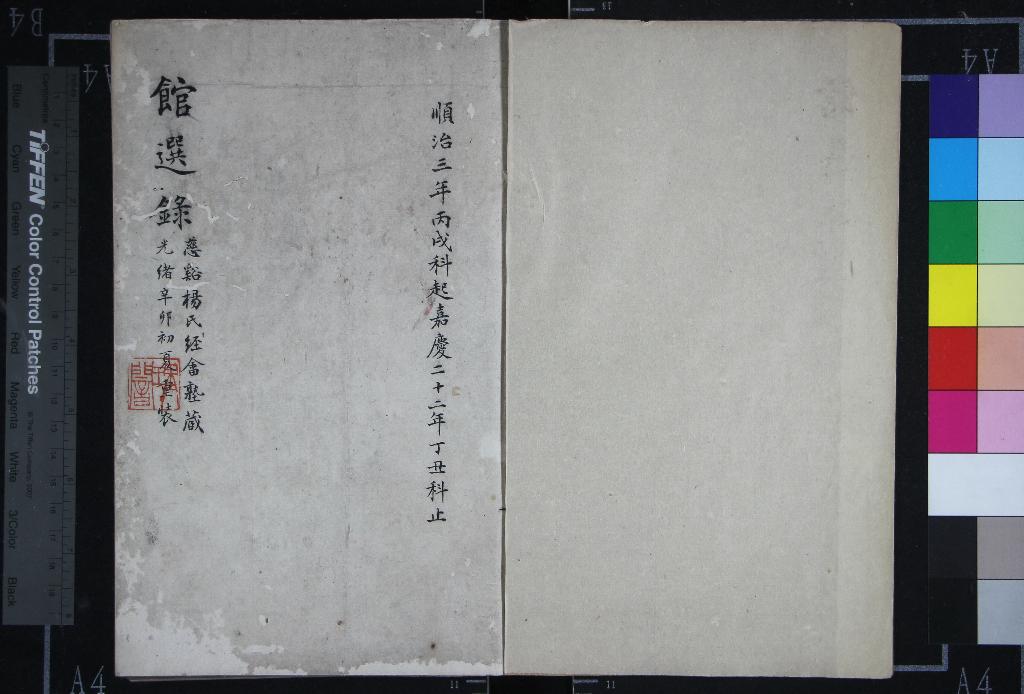 順治三年丙戌科起嘉慶二十二年丁丑科止
館選錄
慈谿楊氏經畬塾藏
光緒辛卯初夏重裝
TIFFEN Color Control Patches
© The Tiffen Company, 2007
Centimetres
Blue
Cyan
Green
Yellow
Red
Magenta
White
3/Color
Black
B4
A4
A4
A4
A4